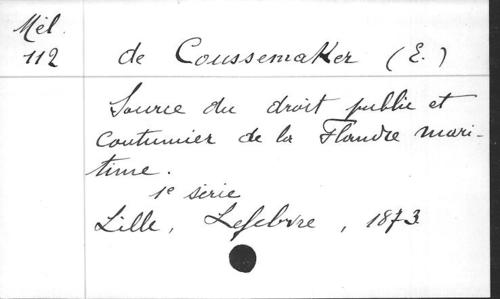 Mél.
112
de Coussemaker (E.)
Source du droit public et
Coutumier de la Flandre mari-
time.
1e série
Lille, Lefebvre, 1873